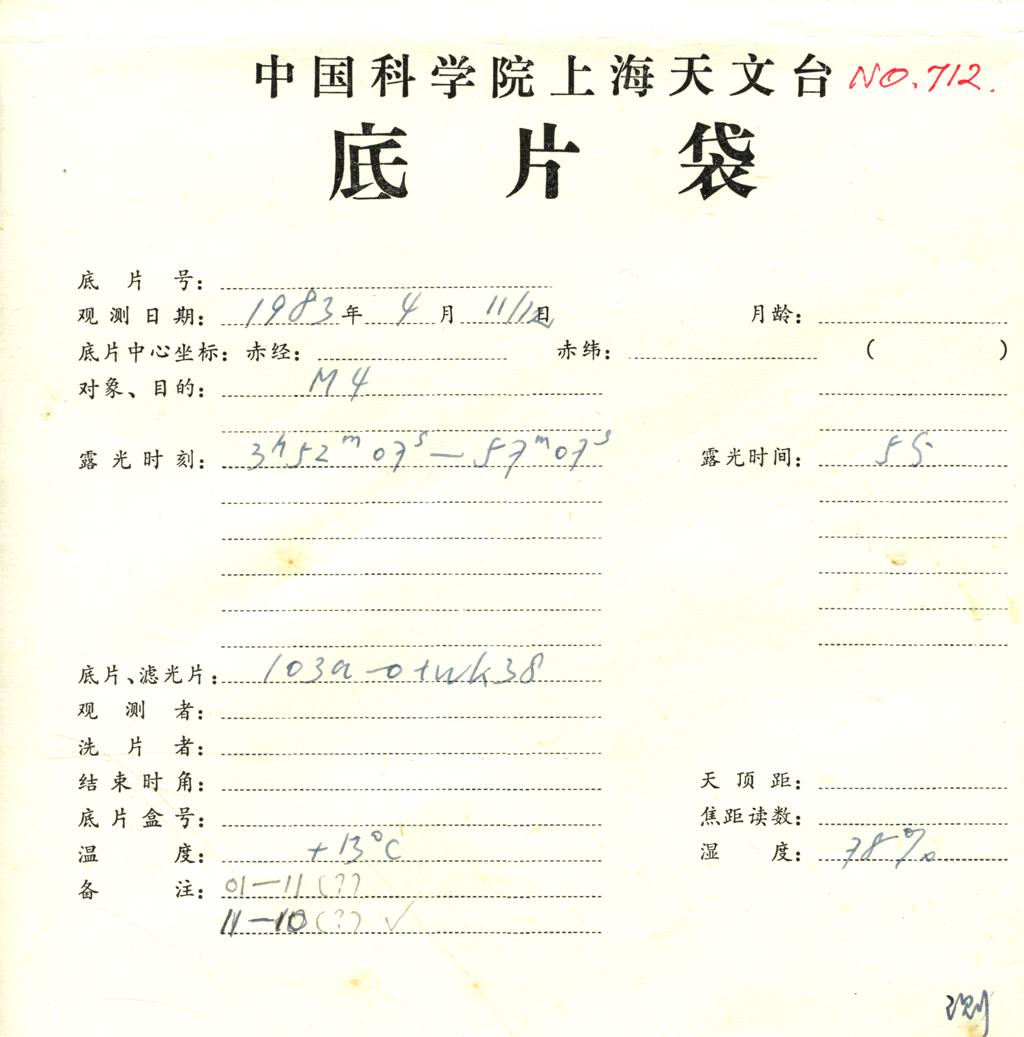 中国科学院上海天文台 NO.712.
底片袋
底片号:
观测日期: 1983年 4月 11/12日 月龄:
底片中心坐标: 赤经: 赤纬: ( )
对象、目的: M4
露光时刻: 3h52m07s—57m07s 露光时间: 5
底片、滤光片: 103a-O+WK38
观测者:
洗片者:
结束时角: 天顶距:
底片盒号: 焦距读数:
温度: +13°C 湿度: 78%
备注: 01—11(??)
11—10(??) ✓